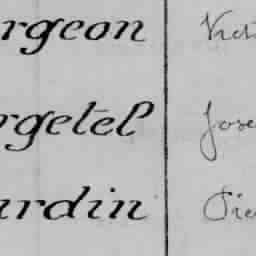 rgeon Vict
rgetel Jose
ardin Pie